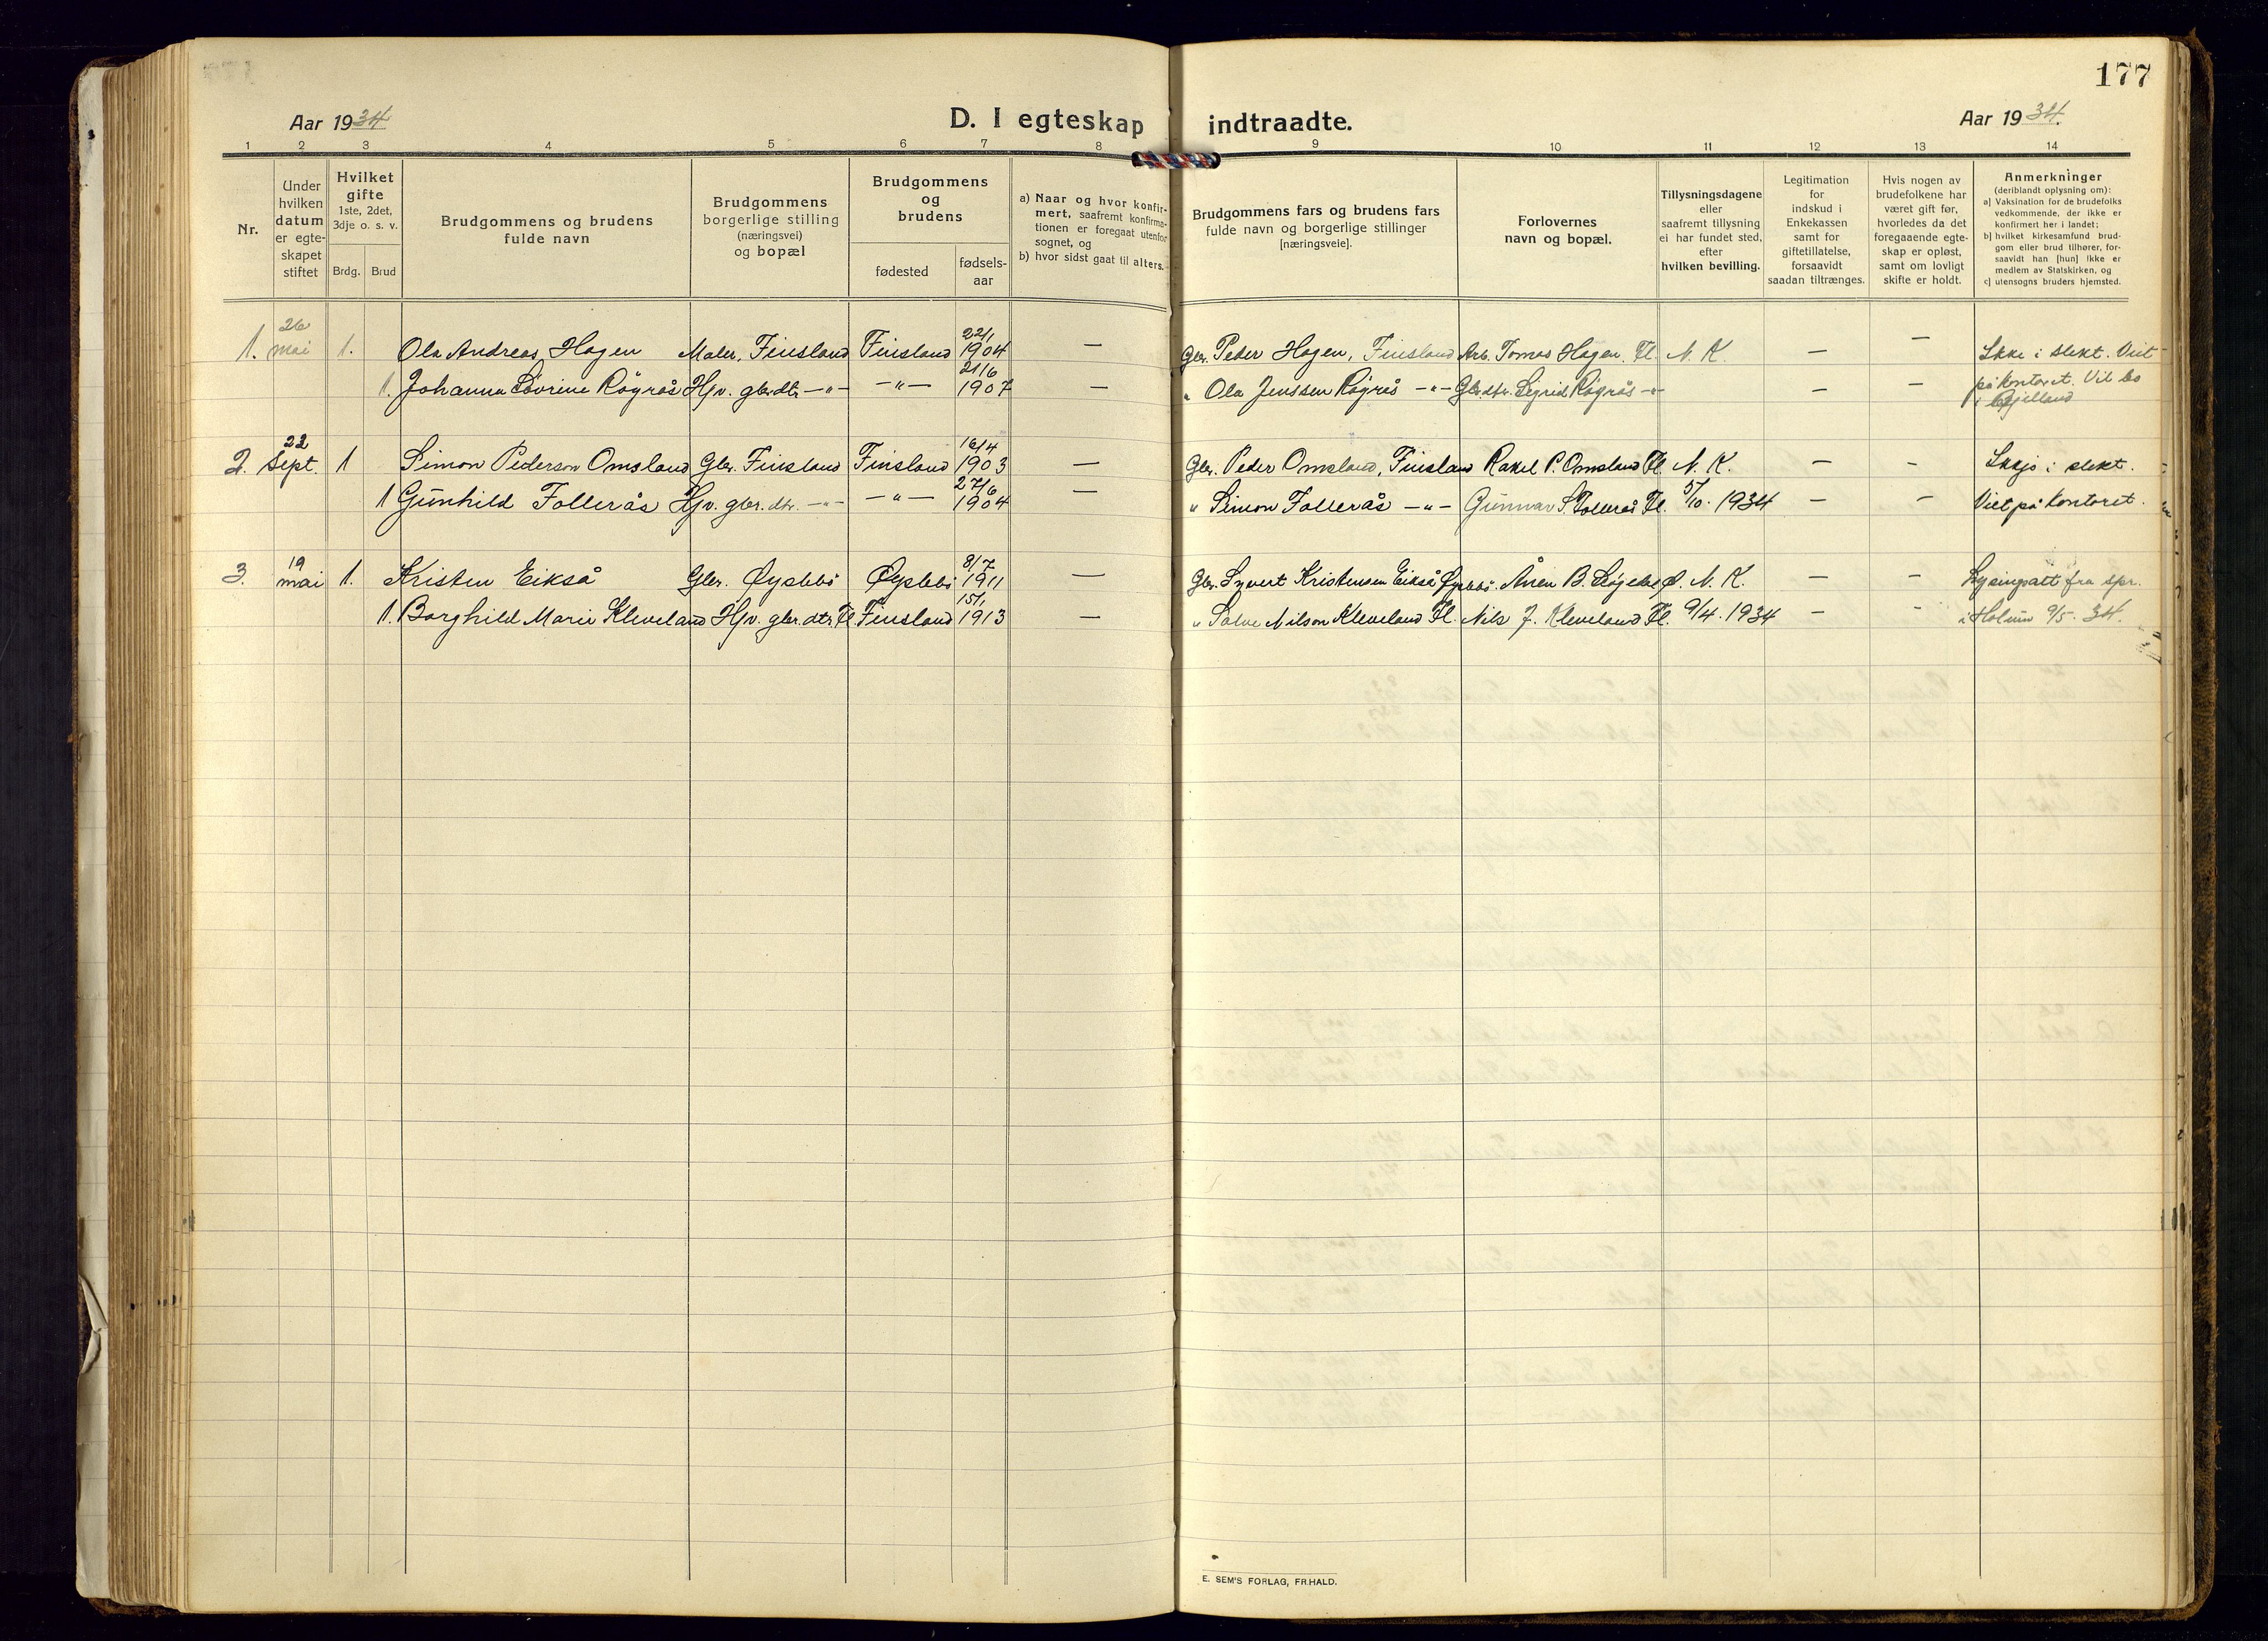 177
Aar 1934
D. I egteskap indtraadte.
Aar 1934.
1 2 3 4 5 6 7 8 9 10 11 12 13 14
Nr.
Under hvilken datum er egte- skapet stiftet
Hvilket gifte 1ste, 2det, 3dje o. s. v.
Brdg. Brud
Brudgommens og brudens fulde navn
Brudgommens borgerlige stilling (næringsvei) og bopæl
Brudgommens og brudens
fødested
fødsels- aar
a) Naar og hvor konfir- mert, saafremt konfirma- tionen er foregaat utenfor sognet, og
b) hvor sidst gaat til alters.
Brudgommens fars og brudens fars fulde navn og borgerlige stillinger [næringsveie].
Forlovernes navn og bopæl.
Tillysningsdagene eller saafremt tillysning ei har fundet sted, efter hvilken bevilling.
Legitimation for indskud i Enkekassen samt for giftetillatelse, forsaavidt saadan tiltrænges.
Hvis nogen av brudefolkene har været gift før, hvorledes da det foregaaende egte- skap er opløst, samt om lovligt skifte er holdt.
Anmerkninger (deriblandt oplysning om):
a] Vaksination for de brudefolks vedkommende, der ikke er konfirmert her i landet;
b] hvilket kirkesamfund brud- gom eller brud tilhører, for- saavidt han [hun] ikke er medlem av Statskirken, og
c] utensogns bruders hjemsted.
1. 26 mai 1. Ola Andreas Hagen Maler, Finsland Finsland 22/1 1904 — Gbr. Peder Hagen, Finsland Arb. Tomas Hagen. Fl. N. K. — — Ikke i slekt. Viet
1. Johanna Sövrine Röyrås Hjv. gbr.dtr —"— —"— 21/6 1907 — " Ola Jenssen Röyrås —"— Gbr.dtr. Sigrid Röyrås —"— — — på kontoret. Vil bo
i Bjelland
2. 22 Sept. 1 Simon Pederson Omsland Gbr. Finsland Finsland 16/4 1903 — Gbr. Peder Omsland, Finsland Rakel P. Omsland Fl. N. K. — — i slekt.
1 Gunhild Follerås Hjv. gbr. dtr. —"— —"— 27/6 1904 — " Simon Follerås —"— Gunnar S. Follerås Fl. 5/10. 1934 — — Viet på kontoret.
3. 19 mai 1. Kristen Eikså Gbr. Øyslebö Øyslebö 8/7 1911 — Gbr. Syvert Kristensen Eikså Øyslebö. Ånen B. Ø. N. K. — — Lysingsatt fra spr.
1. Borghild Marie Kleveland Hjv. gbr. dtr. Fl. Finsland 15/1 1913 — " Salve Nilson Kleveland Fl. Nils J. Kleveland Fl. 9/4. 1934 — — i Holum 9/5. 34.
E. SEM'S FORLAG, FR.HALD.